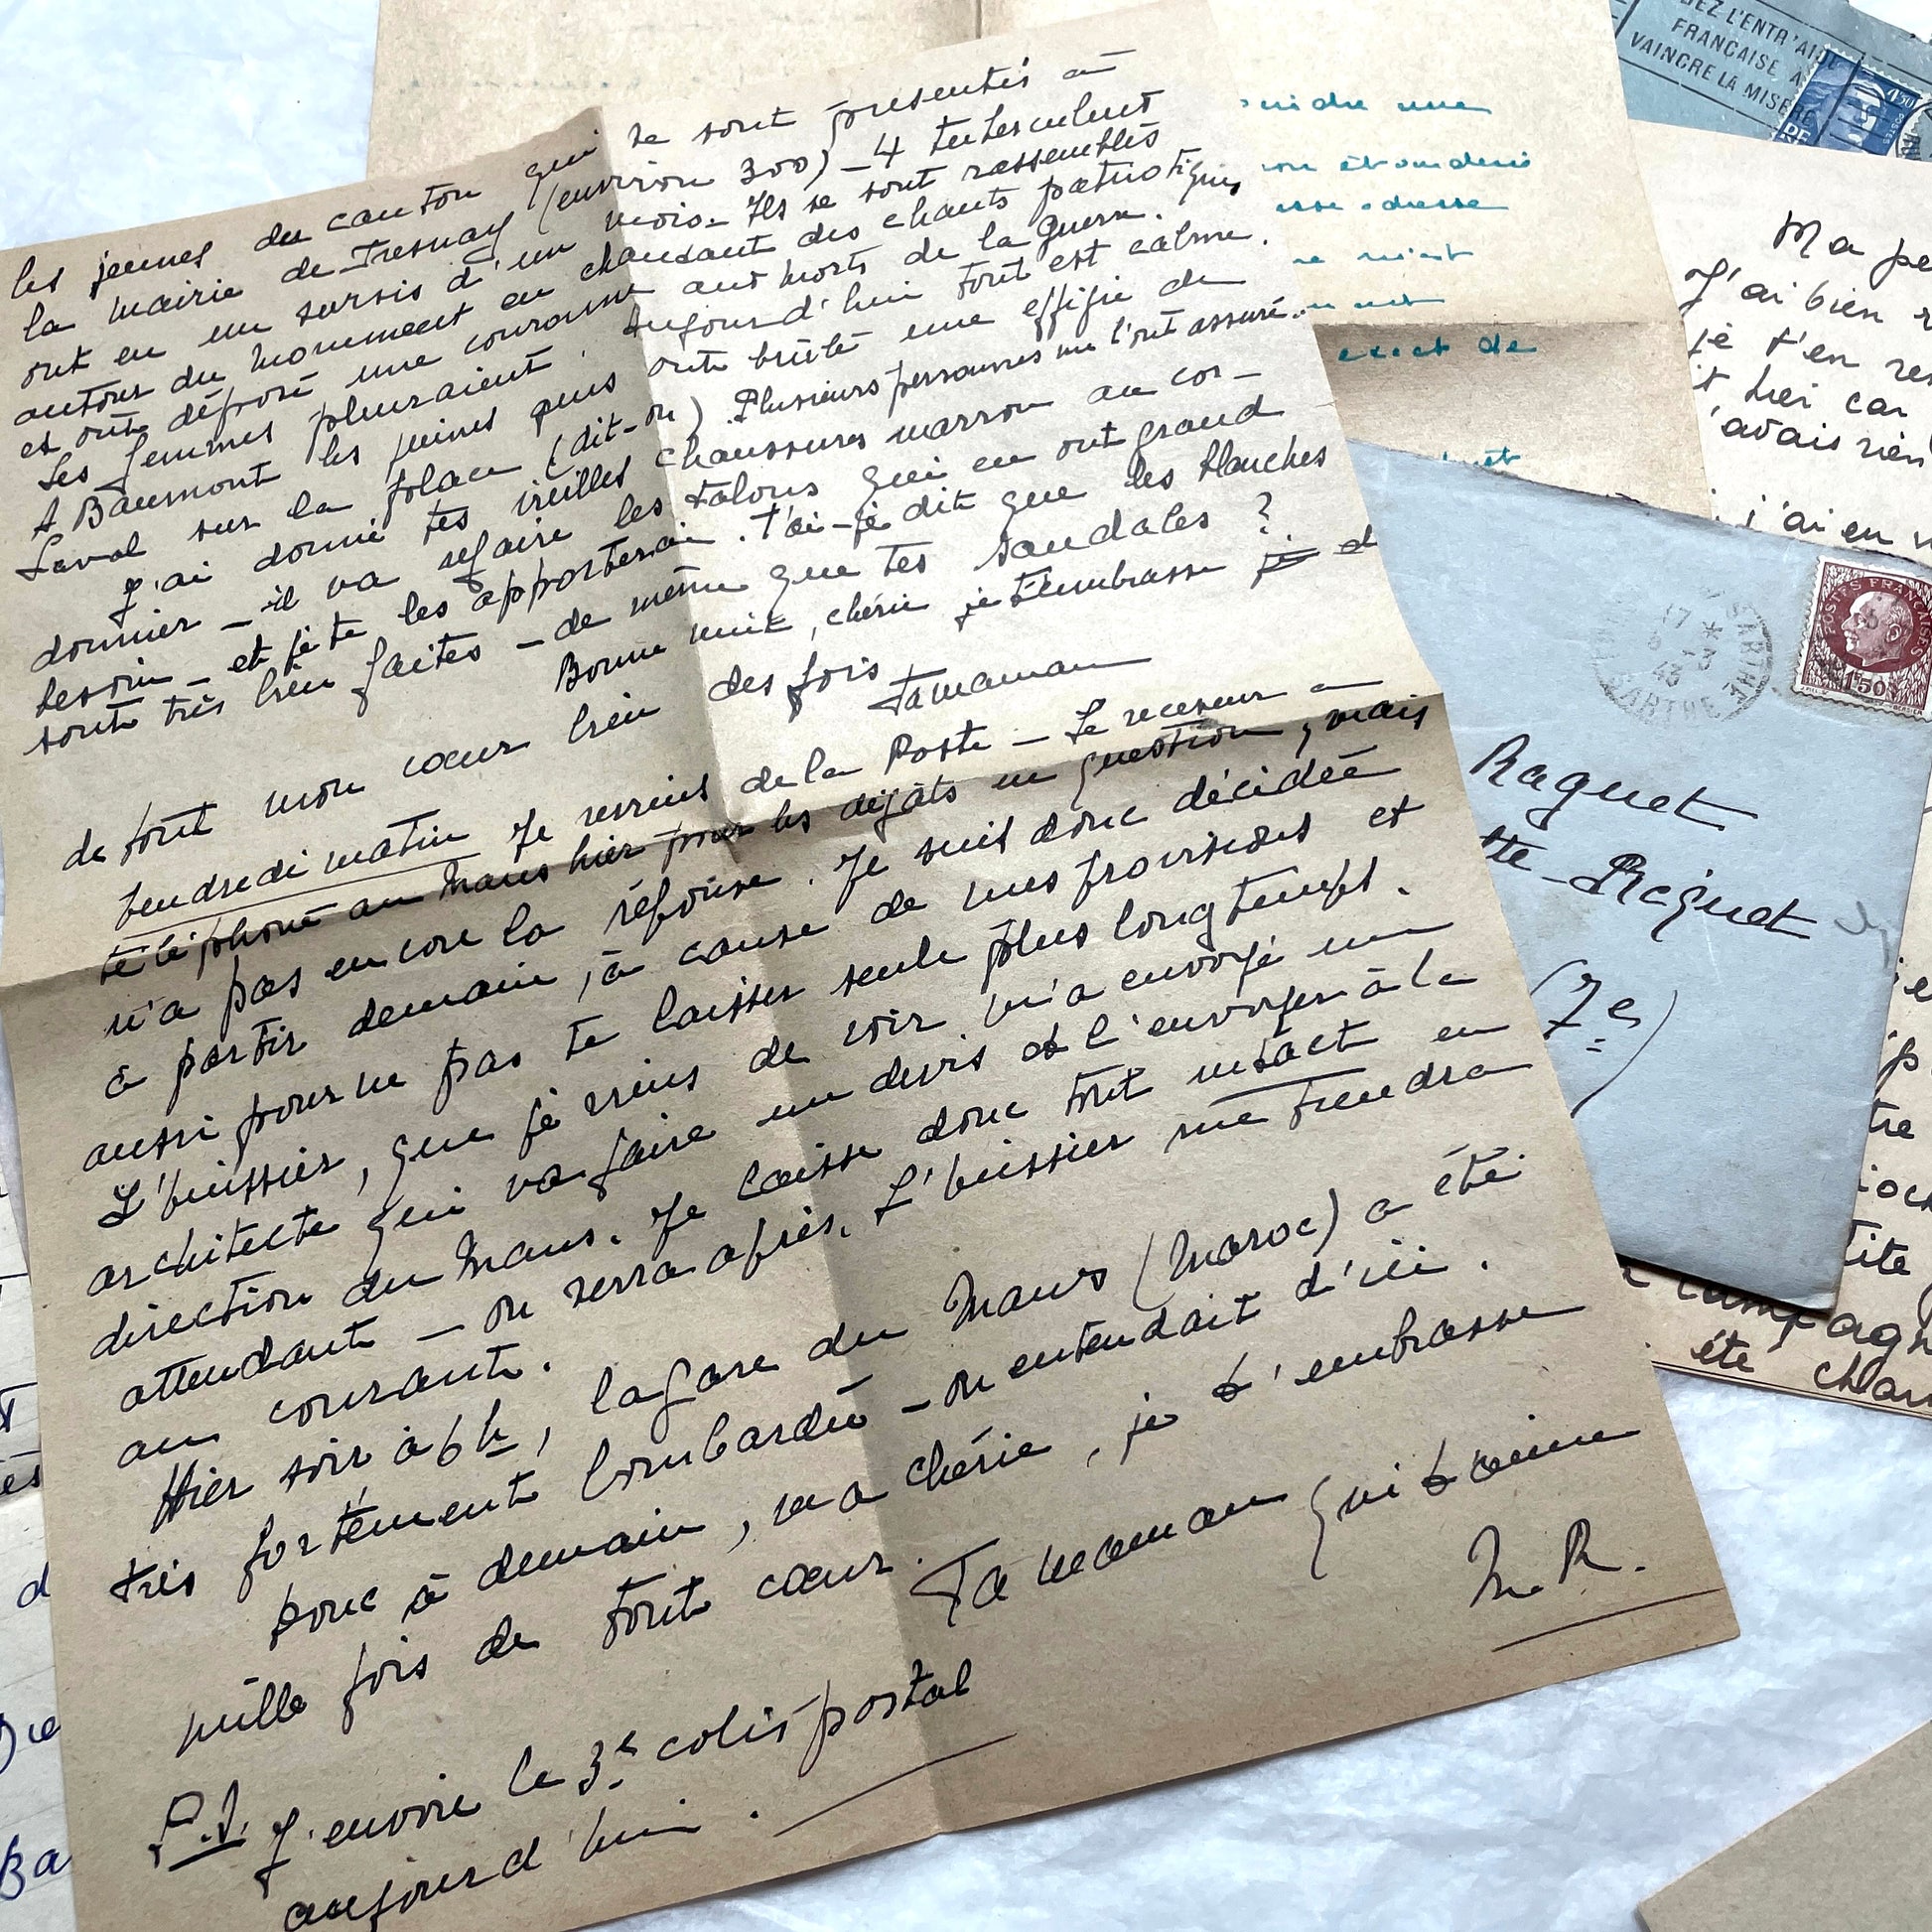 les jeunes du canton qui se sont présentés à
la mairie de Fresnay (environ 300) - 4 tuberculeux
ont eu un sursis d'un mois. Ils se sont rassemblés
autour du monument en chantant des chants patriotiques
et ont déposé une couronne aux morts de la guerre.
Les femmes pleuraient. Aujourd'hui tout est calme.
A Beaumont les jeunes gens ont brûlé une effigie de
Laval sur la place (dit-on). Plusieurs personnes me l'ont assuré..
J'ai donné tes vieilles chaussures marron au cor-
donnier - il va refaire les talons qui en ont grand
besoin - et je te les apporterai. T'ai-je dit que les blanches
sont très bien faites - de même que tes sandales ?
Bonne nuit, chérie je t'embrasse
de tout mon cœur bien des fois
Ta maman
Vendredi matin Je reviens de la Poste - Le receveur a
téléphoné au Mans hier pour les dégâts en question, mais
n'a pas encore la réponse. Je suis donc décidée
à partir demain, à cause de mes provisions et
aussi pour ne pas te laisser seule plus longtemps.
L'huissier, que je viens de voir, m'a envoyé un
architecte qui va faire un devis et l'envoyer à la
direction du Mans. Je laisse donc tout intact en
attendant - on verra après. L'huissier me tiendra
au courant.
Hier soir à 6h, la gare du Mans (Maroc) a été
très fortement bombardée - on entendait d'ici.
Donc à demain, ma chérie, je t'embrasse
mille fois de tout cœur.
Ta maman qui t'aime
M. R.
P.S. J'envoie le 3e colis postal
aujourd'hui.
EZ L'ENTR'AIDE
FRANÇAISE A
VAINCRE LA MISÈ
4F50
POSTES
Ma pe
J'ai bien r
je t'en re
'avais rien
j'ai en
POSTES FRANÇAISES
1F50
17
43
SARTHE
Raquet
tte Raquet
(7e)
exact de
tre
tite
campagn
été chan
Ba